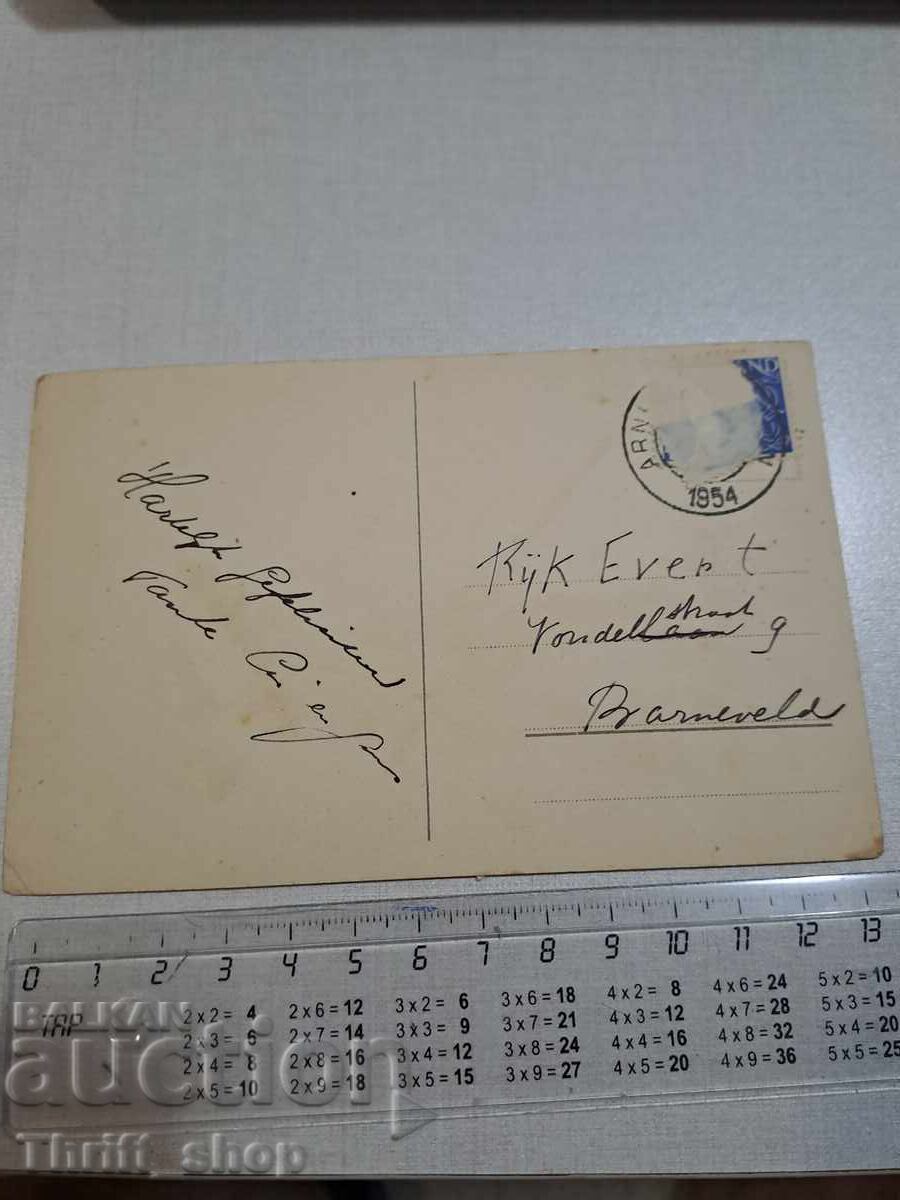 ND
ARN
1954
Hartelijk gefeliciteerd
Tante Cor en
Rijk Evert
Vondellaan straat 9
Barneveld
0 1 2 3 4 5 6 7 8 9 10 11 12 13
TAP
2 x 2 = 4 2 x 6 = 12 3 x 2 = 6 3 x 6 = 18 4 x 2 = 8 4 x 6 = 24 5 x 2 = 10
2 x 3 = 6 2 x 7 = 14 3 x 3 = 9 3 x 7 = 21 4 x 3 = 12 4 x 7 = 28 5 x 3 = 15
2 x 4 = 8 2 x 8 = 16 3 x 4 = 12 3 x 8 = 24 4 x 4 = 16 4 x 8 = 32 5 x 4 = 20
2 x 5 = 10 2 x 9 = 18 3 x 5 = 15 3 x 9 = 27 4 x 5 = 20 4 x 9 = 36 5 x 5 = 25
BALKAN
auction
Thrift_shop